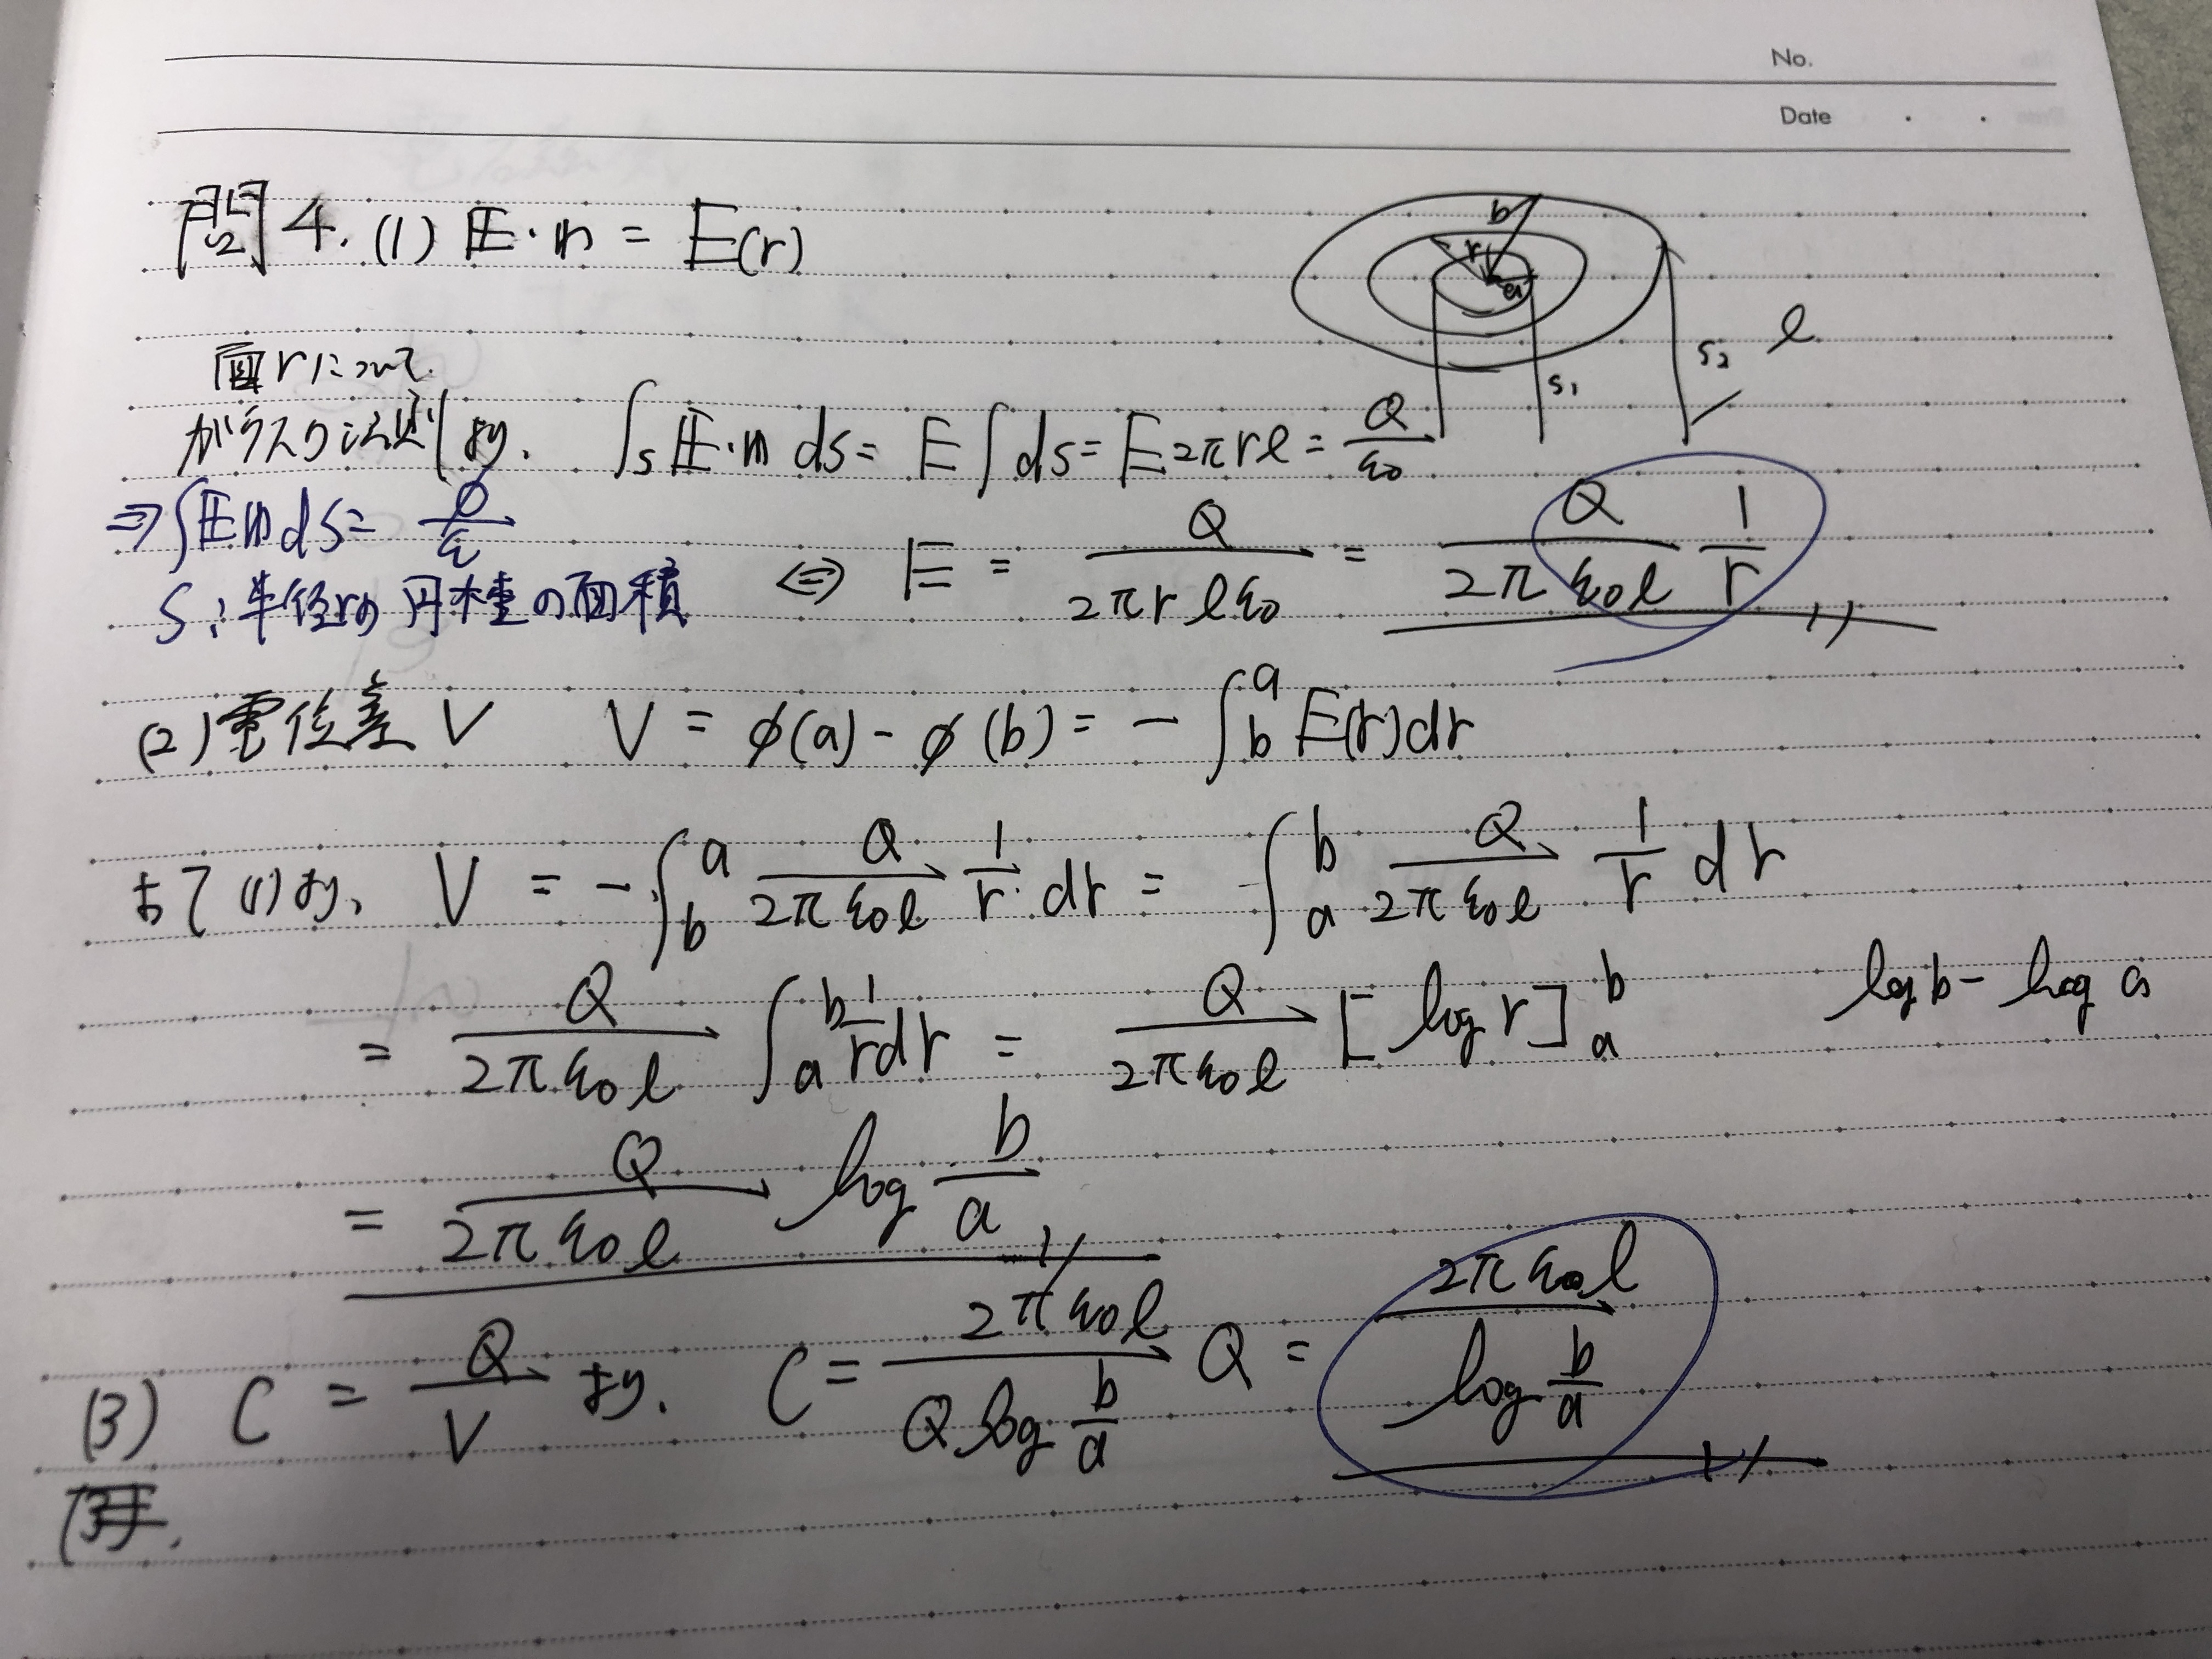 No.
Date
問4. (1) E・n = E(r)
b
r
a
S₁
S₂ l
面rについて
ガウスの法則より. ∫s E・n ds = E∫ds = E 2πrl = Q/ε₀
⇒ ∫E n ds = Q/ε
S: 半径rの円柱の面積
⇔ E = Q/2πrlε₀ = Q/2πε₀l 1/r
(2) 電位差V V = φ(a) - φ(b) = - ∫_b^a E(r)dr
よって(1)より、 V = - ∫_b^a Q/2πε₀l 1/r dr = ∫_a^b Q/2πε₀l 1/r dr
= Q/2πε₀l ∫_a^b 1/r dr = Q/2πε₀l [log r]_a^b log b - log a
= Q/2πε₀l log b/a
(3) C = Q/V より. C = 2πε₀l/Q log b/a Q = 2πε₀l/log b/a